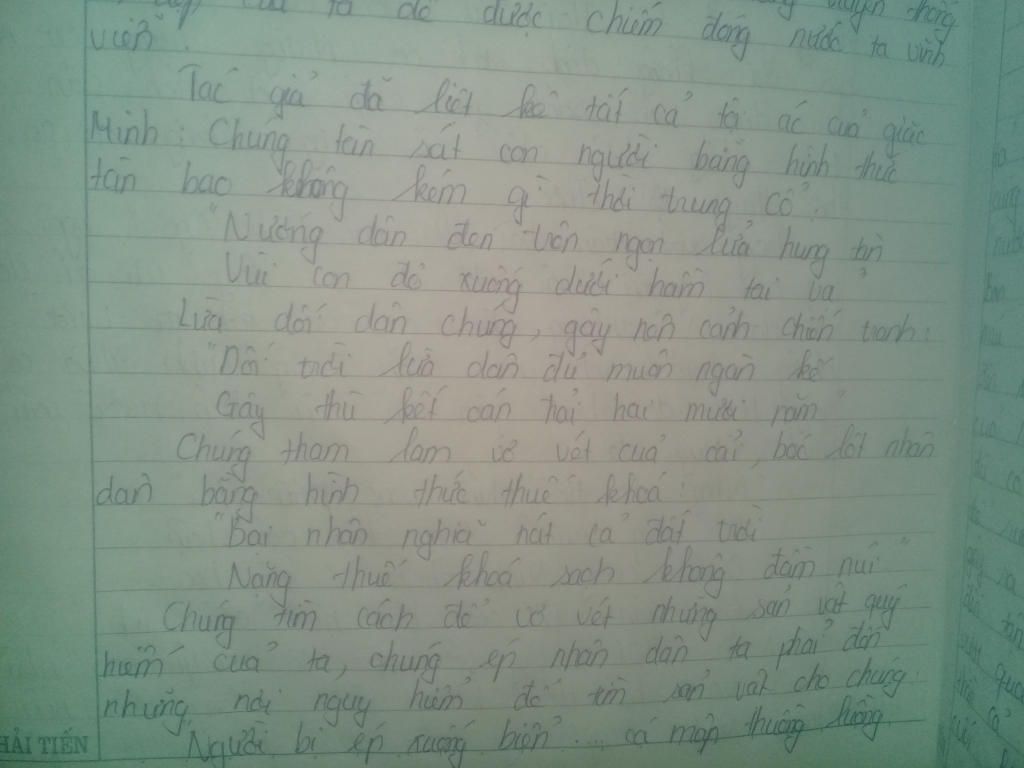 của ta để được chiếm đóng nước ta vĩnh
viễn.
Tác giả đã liệt kê tất cả tội ác của giặc
Minh: Chúng tàn sát con người bằng hình thức
tàn bạo không kém gì thời trung cổ.
"Nướng dân đen trên ngọn lửa hung tàn
Vùi con đỏ xuống dưới hầm tai vạ"
Lừa dối dân chúng, gây nên cảnh chiến tranh:
"Dối trời lừa dân đủ muôn ngàn kế
Gây thù kết oán trải hai mươi năm"
Chúng tham lam vơ vét của cải, bóc lột nhân
dân bằng hình thức thuế khoá:
"Bại nhân nghĩa nát cả đất trời
Nặng thuế khoá sạch không đầm núi"
Chúng tìm cách để vơ vét những sản vật quý
hiếm của ta, chúng ép nhân dân ta phải đến
những nơi nguy hiểm để tìm sản vật cho chúng.
"Người bị ép xuống biển ... cá mập thuồng luồng
HẢI TIẾN